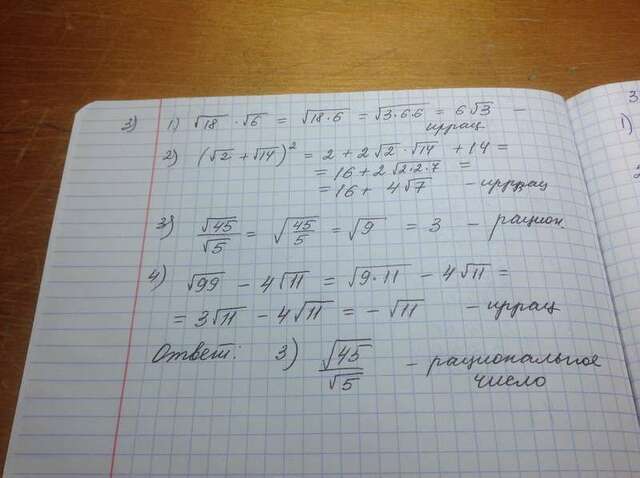 3) 1) √18 · √6 = √18·6 = √3·6·6 = 6√3 –
иррац
2) (√2 + √14)² = 2 + 2√2 · √14 + 14 =
= 16 + 2√2·2·7 =
= 16 + 4√7 – иррац
3) √45/√5 = √45/5 = √9 = 3 – рацион.
4) √99 – 4√11 = √9·11 – 4√11 =
= 3√11 – 4√11 = –√11 – иррац
Ответ: 3) √45/√5 – рациональное
число
3
1)